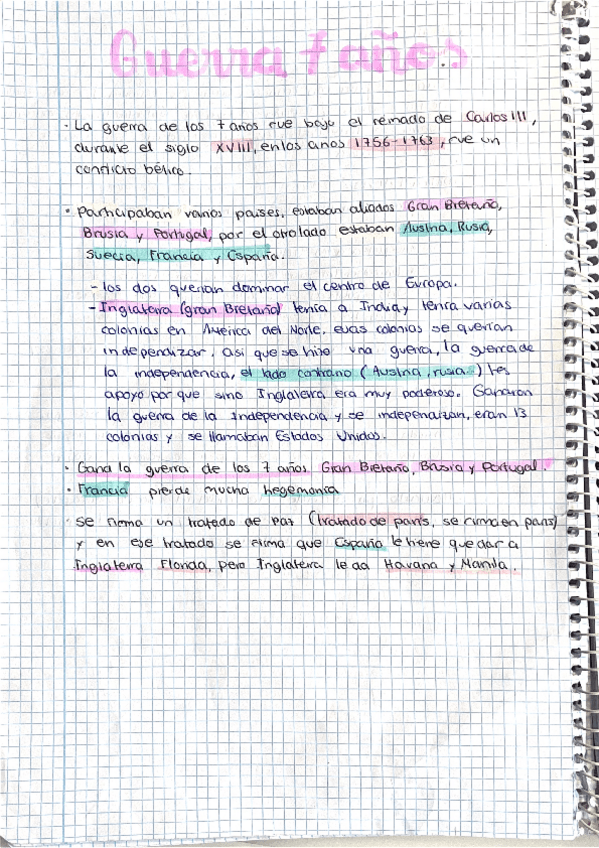 Guerra 7 años
· La guerra de los 7 años fue bajo el reinado de Carlos III,
durante el siglo XVIII, en los años 1756-1763, fue un
conflicto bélico.
· Participaban varios países, estaban aliados Gran Bretaña,
Brusia y Portugal, por el otro lado estaban Austria, Rusia,
Suecia, Francia y España.
- los dos querían dominar el centro de Europa.
- Inglaterra (gran Bretaña) tenía a India y tenía varias
colonias en América del Norte, euas colonias se querían
independizar, así que se hizo una guerra, la guerra de
la independencia, el lado contrario (Austria, rusia..) les
apoyo por que sino Inglaterra era muy poderoso. Ganaron
la guerra de la Independencia y se independizan, eran 13
colonias y se llamaban Estados Unidos.
· Gana la guerra de los 7 años Gran Bretaña, Brusia y Portugal.
· Francia pierde mucha hegemonía
· se firma un tratado de paz (tratado de parís, se firma en parís)
y en ese tratado se firma que España le tiene que dar a
Inglaterra Florida, pero Inglaterra le da Havana y Manila.